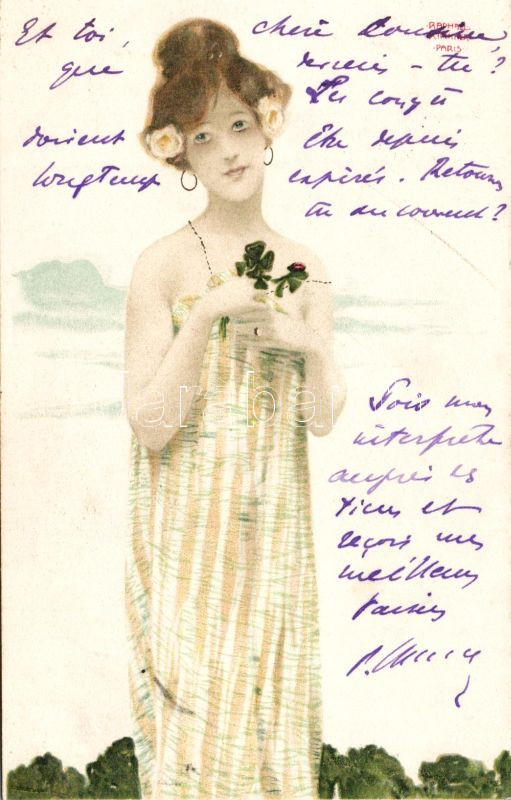 Et toi, chère Cousine,
que deviens-tu?
Les congés
doivent être depuis
longtemps expirés. Retournes
tu au couvent?
RAPHAEL
KIRCHNER
PARIS
Sois mon
interprète
auprès des
tiens et
reçois mes
meilleurs
baisers